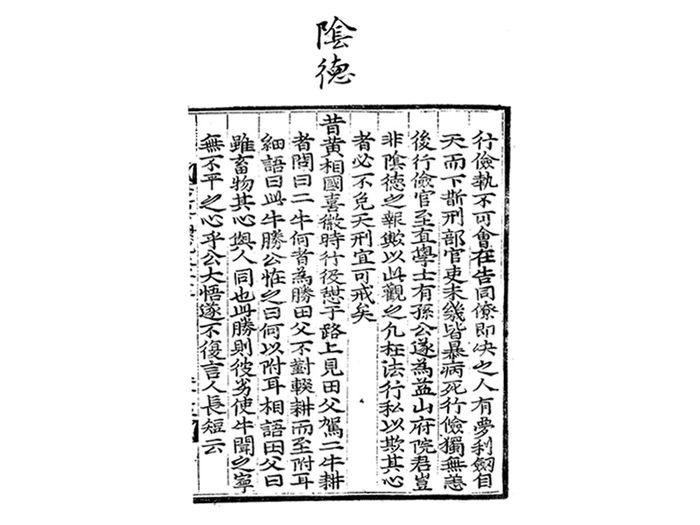 陰德
行儉執不可會在告同僚即决之人有夢利劒自
天而下斷刑部官吏未幾皆暴病死行儉獨無恙
後行儉官至直學士有孫公遂爲益山府院君豈
非陰德之報歟以此觀之凡枉法行私以欺其心
者必不免天刑宜可戒矣
昔黃相國喜微時行役憇于路上見田父駕二牛耕
者問曰二牛何者爲勝田父不對輟耕而至附耳
細語曰此牛勝公恠之曰何以附耳相語田父曰
雖畜物其心與人同也此勝則彼劣使牛聞之寧
無不平之心乎公大悟遂不復言人長短云